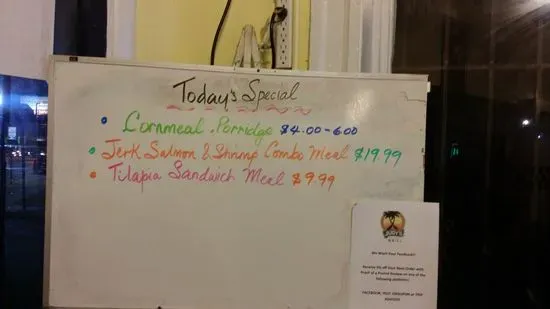 Today's Special
• Cornmeal Porridge $4.00-6.00
• Jerk Salmon & Shrimp Combo Meal $19.99
• Tilapia Sandwich Meal $9.99
JUDY'S
GRILL
We Want Your Feedback!
Receive 5% off Your Next Order with
Proof of a Posted Review on any of the
following platforms:
FACEBOOK, YELP, GROUPON or TRIP
ADVISOR